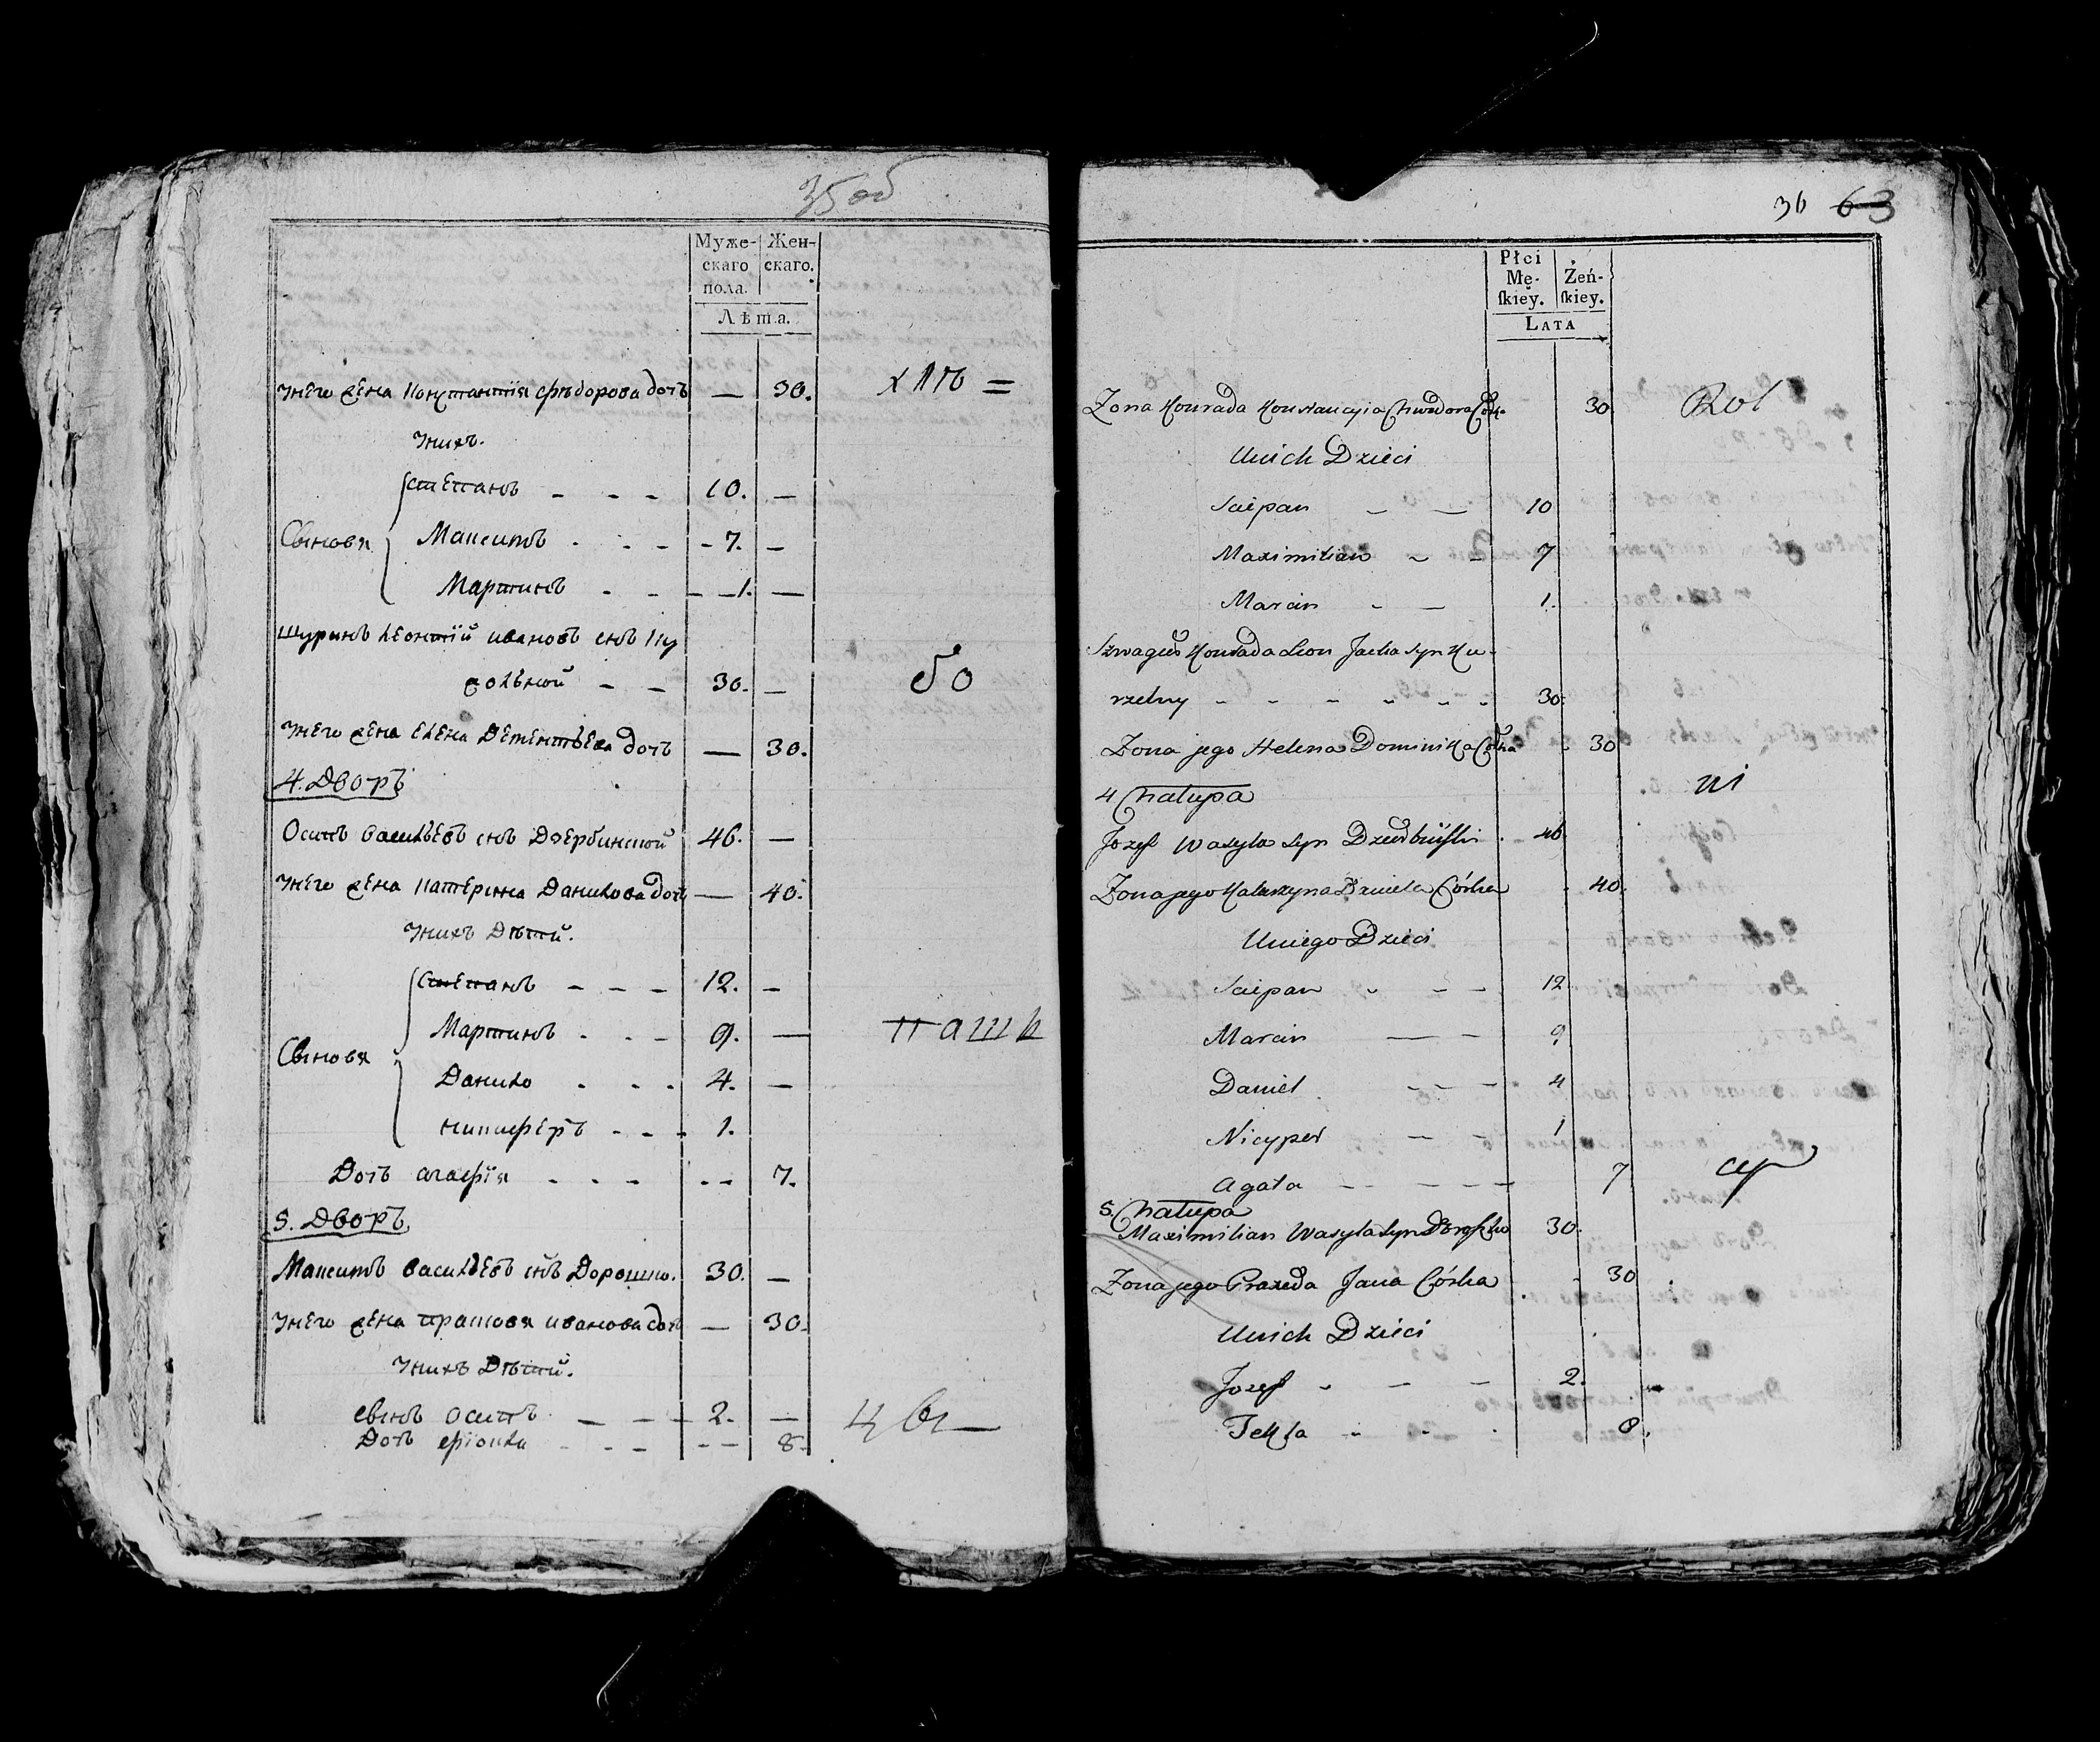 35 об
Муже-
скаго
пола.
Жен-
скаго.
Лѣта.
унего жена Константія фѣдорова дочь — 30.
хлѣб =
унихъ.
Степанъ - - - 10. —
Сыновя Максимъ - - - 7. —
Мартинъ - - - 1. —
шуринъ леонтій ивановъ снъ Ку
жольной - - 30. —
бо
унего жена елена Деменьтьева дочь — 30.
4. Дворъ
Осипъ васильевъ снъ Дзербинской 46. —
унего жена катерина Данилова дочь — 40.
унихъ Дѣтей.
Степанъ - - - 12. —
Мартинъ - - - 9. —
пашн
Сыновя
Данило - - - 4. —
никиферъ - - - 1.
Дочь агафія - - - -- 7.
5. Дворъ
Максимъ васильевъ снъ Дорошко. 30. —
унего жена прасковя иванова дочь — 30.
унихъ Дѣтей.
сынъ осипъ - - - 2. —
Дочь фіокла - - - -- 8.
36 63
Płci
Mę-
skiey.
Żeń-
skiey.
LATA
Zona Konrada Konstancyia Chwedora Córk. 30
Rol
Unich Dzieci
Sciepan - - 10
Maximilian - - 7
Marcin - - 1.
Szwagier Konrada Leon Jacka syn Ku-
rzelny - - - - - - 30.
Zona jego Helena Dominika Córka - 30
ni
4 Chałupa
Jozef Wasyla Syn Dzierbiński - 46
Zona jego Katarzyna Daniela Córka - 40.
Uniego Dzieci
Sciepan - - - 12
Marcin — — 9
Daniel - - - 4
Nicyper - - 1
Agata - - - - - 7
5. Chałupa
Maximilian Wasyla Syn Doroszko 30.
Zona jego Praxeda Jana Córka - 30
Unich Dzieci
Jozef - - - 2.
Tekla - - - 8.